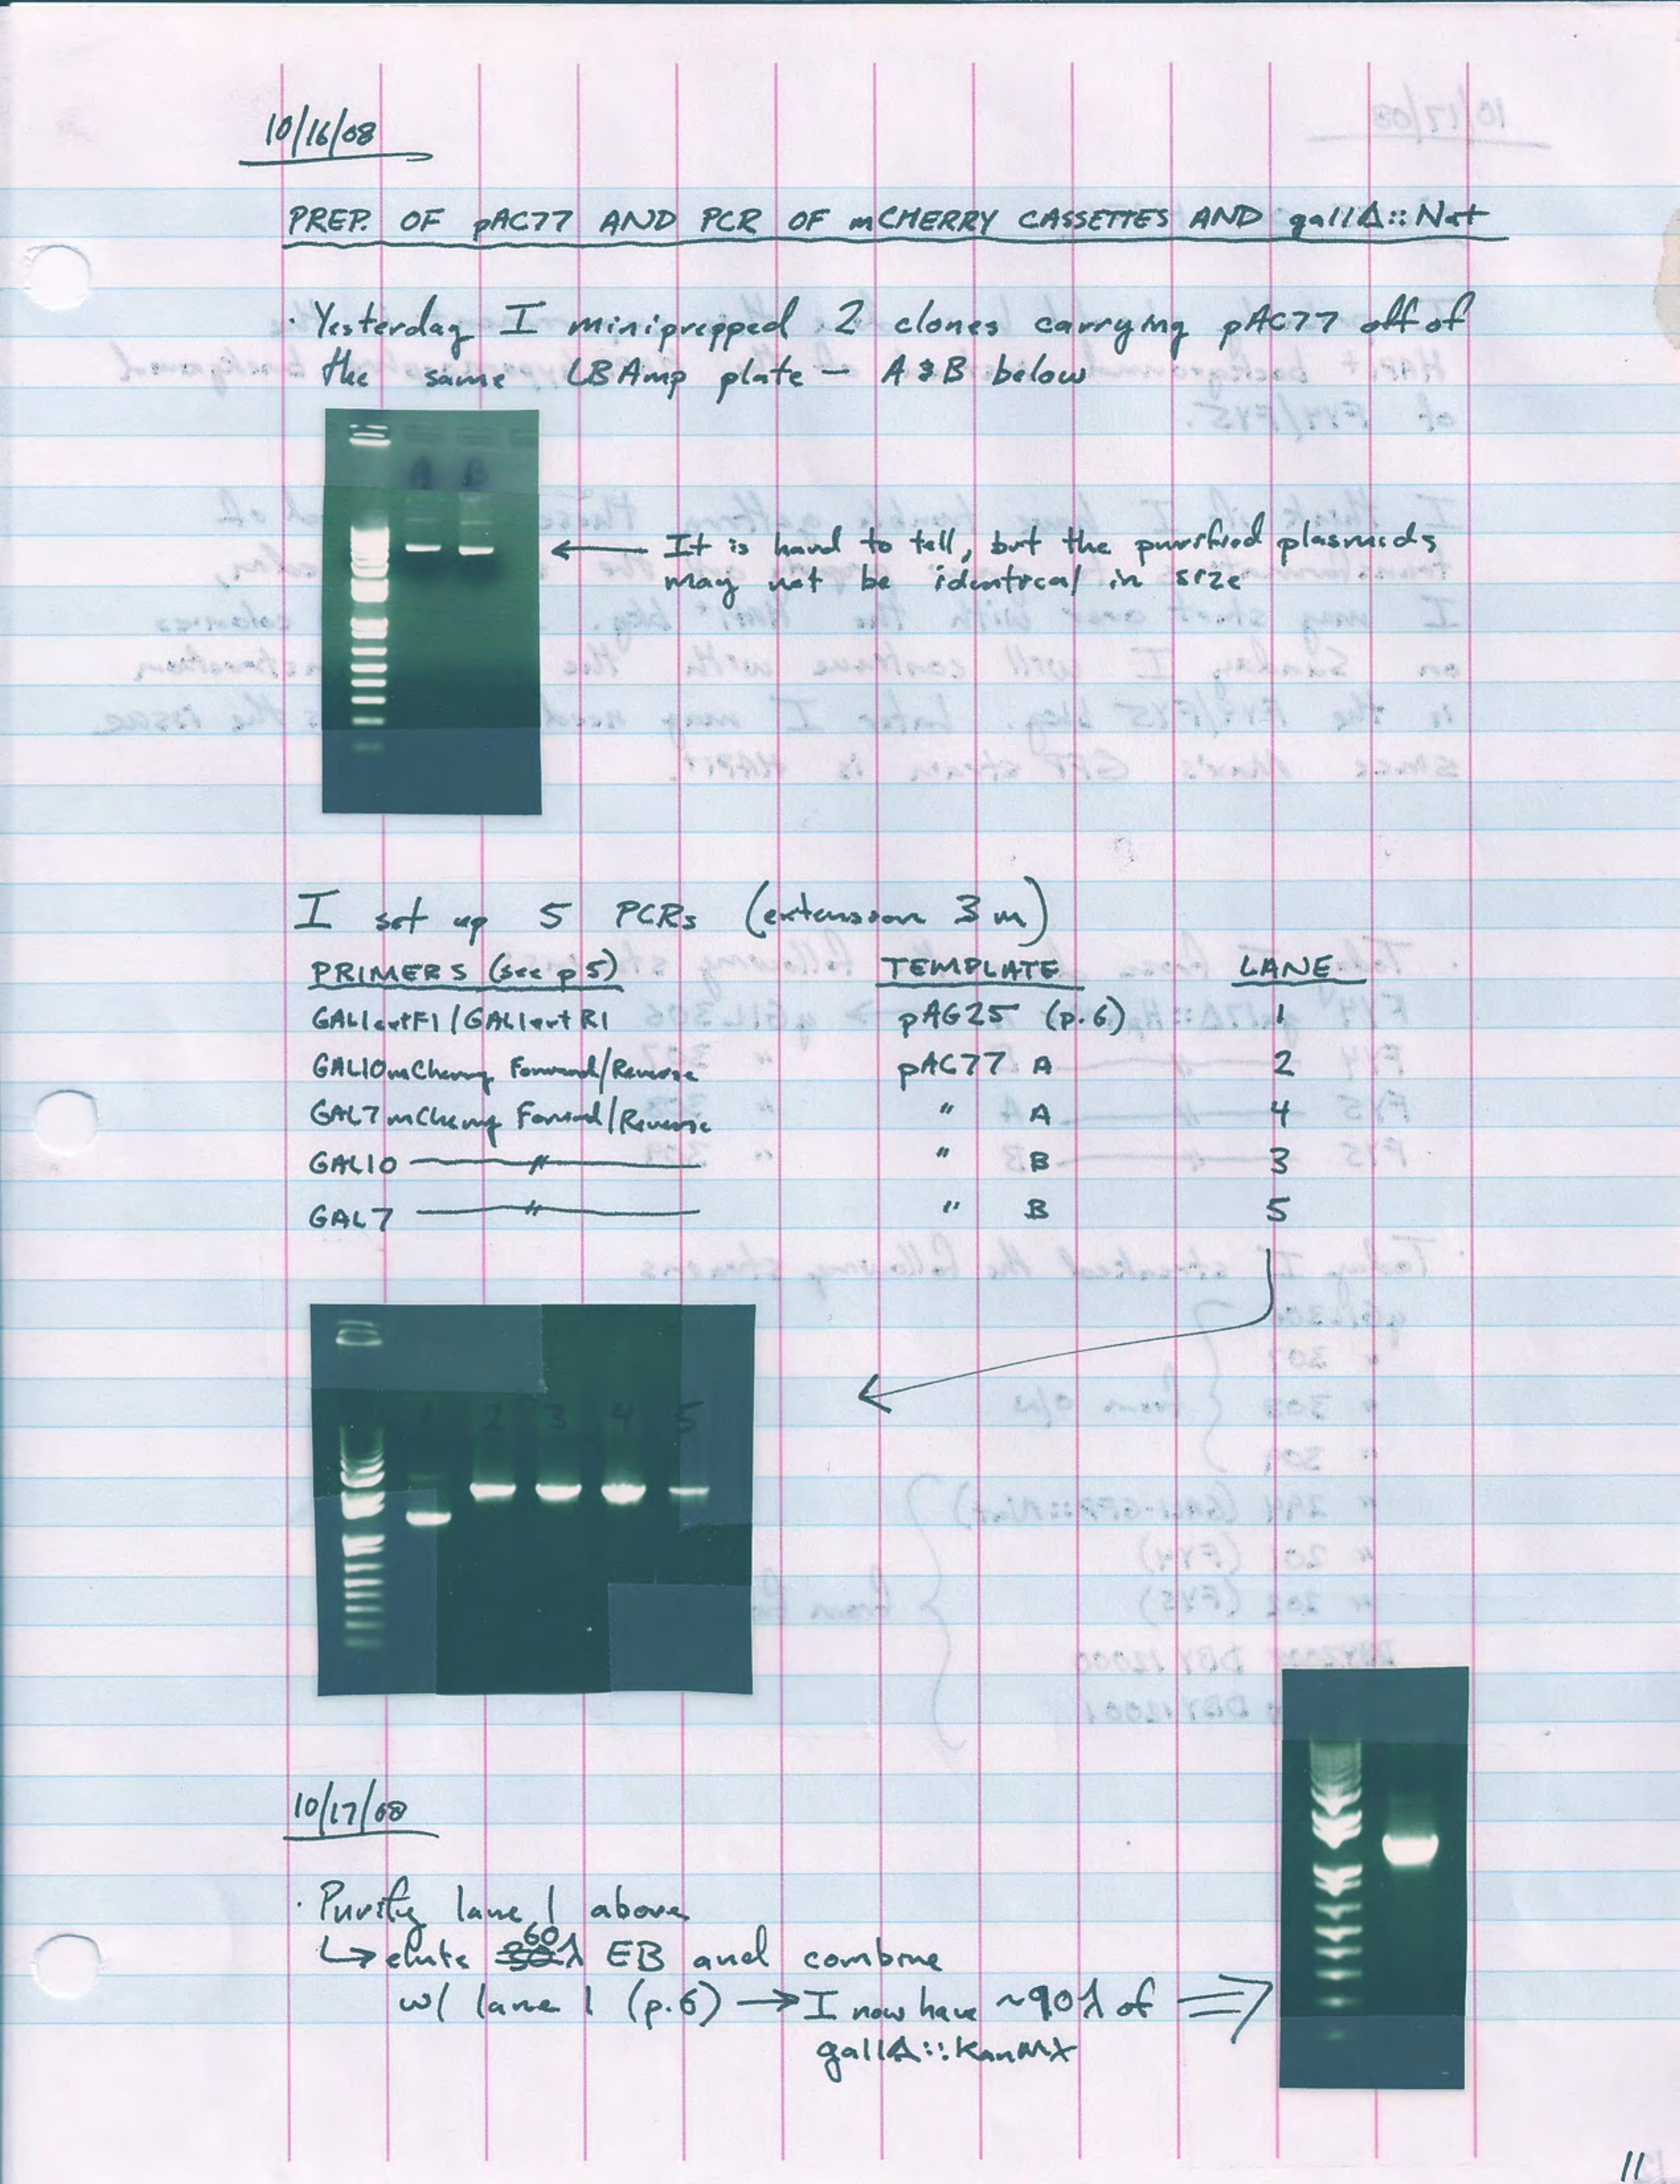 10/16/08
PREP. OF pAC77 AND PCR OF mCHERRY CASSETTES AND gal1Δ::Nat
· Yesterday I miniprepped 2 clones carrying pAC77 off of
the same LBAmp plate — A & B below
A B
← It is hard to tell, but the purified plasmids
may not be identical in size
I set up 5 PCRs (extension 3 m)
PRIMERS (see p5) TEMPLATE LANE
GAL1extF1/GAL1extR1 pAG25 (p.6) 1
GAL10mCherry Forward/Reverse pAC77 A 2
GAL7mCherry Forward/Reverse " A 4
GAL10 — " — " B 3
GAL7 — " — " B 5
1 2 3 4 5
10/17/08
· Purify lane 1 above
↳ elute 60λ EB and combine
w/ lane 1 (p.6) → I now have ~90λ of ⇒
gal1Δ::KanMX
11